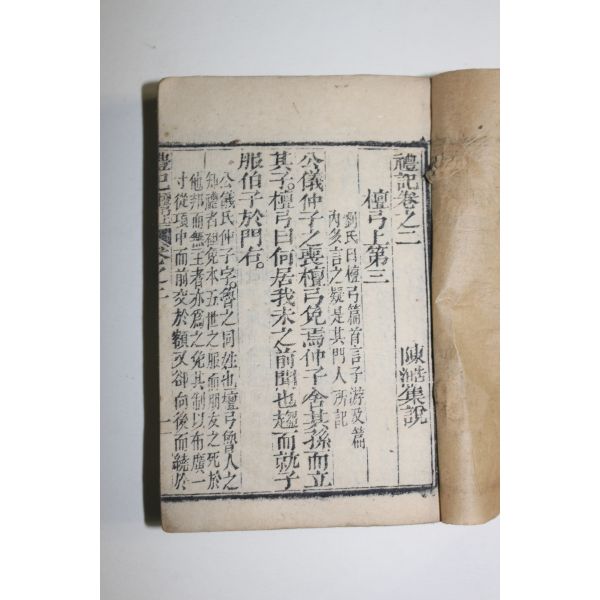 禮記卷之二 陳澔集說
檀弓上第三
劉氏曰檀弓篇首言子游及篇
內多言之疑是其門人所記
公儀仲子之喪檀弓免焉仲子舍其孫而立
其子檀弓曰何居我未之前聞也趨而就子
服伯子於門右
公儀氏仲子字魯之同姓也檀弓魯人之
知禮者袒免本五世之服而朋友之死於
他邦而無主者亦爲之免其制以布廣一
寸從項中而前交於額又卻向後而繞於
禮記 檀弓上 卷之二 一